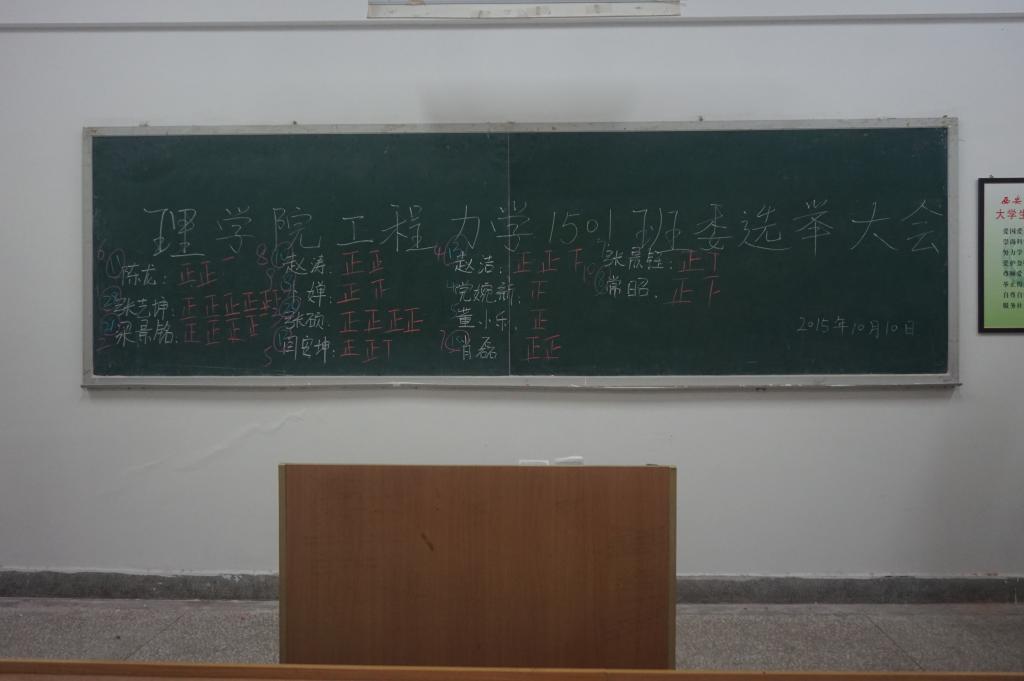 理学院工程力学1501班委选举大会
陈龙: 正正一
赵涛: 正正
赵洁: 正正下
张晨钰: 正丅
张艺坤: 正正正正正
婵: 正
党婉新: 正
常昭: 正下
梁景铭: 正正正正
张硕: 正正正正
董小乐: 正
闫安坤: 正正丅
肖磊 正正
2015年10月10日
西安
大学生
爱国爱
崇尚科
努力学